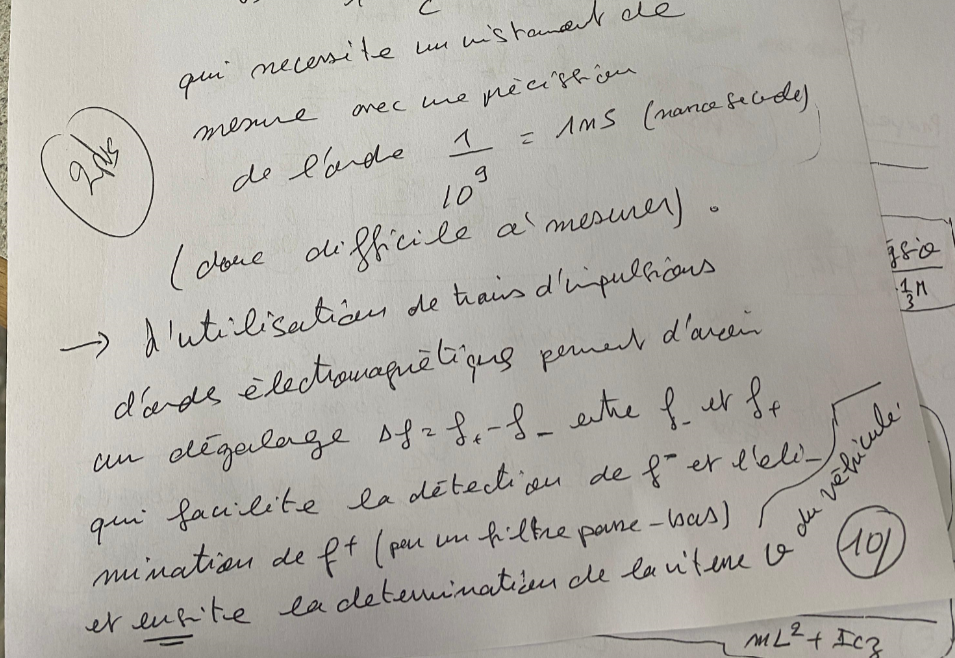 c
qui necessite un instrument de
mesure avec une précission
2pts
de l'orde 1/10⁹ = 1ns (nanoseconde)
(donc difficile à mesurer).
→ L'utilisation de trains d'impulsions
d'ondes électromagnétiques permet d'avoir
un dégalage Δf = f₊ - f₋ entre f₋ et f₊
qui facilite la détection de f⁻ et l'eli-
mination de f⁺ (par un filtre passe-bas)
et ensite la determination de la vitesse v du véhicule.
10)
1/3 M
mL² + Icz